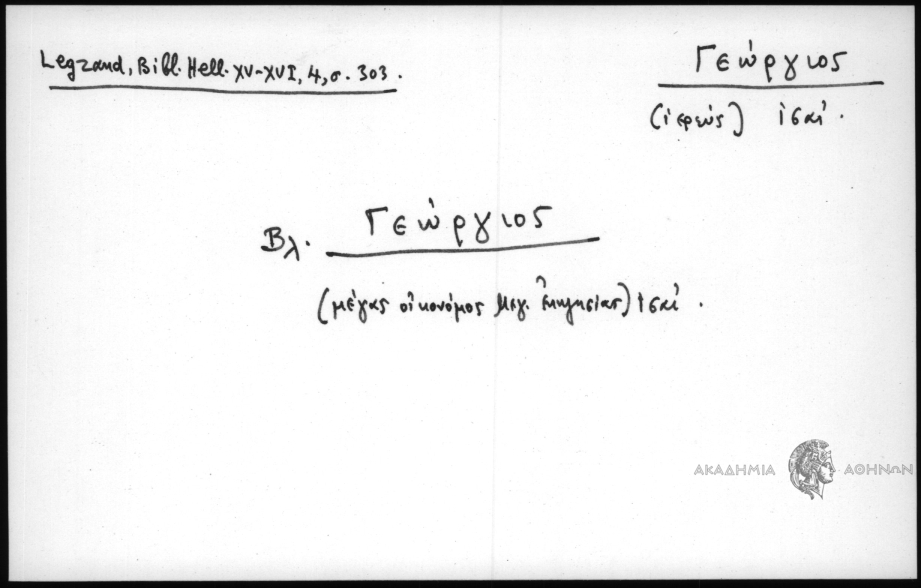 Legrand, Bibl. Hell. XV-XVI, 4, σ. 303.
Γεώργιος
(ἱερεύς) ις αἰ.
Βλ. Γεώργιος
(μέγας οἰκονόμος Μεγ. Ἐκκλησίας) ις αἰ.
ΑΚΑΔΗΜΙΑ ΑΘΗΝΩΝ